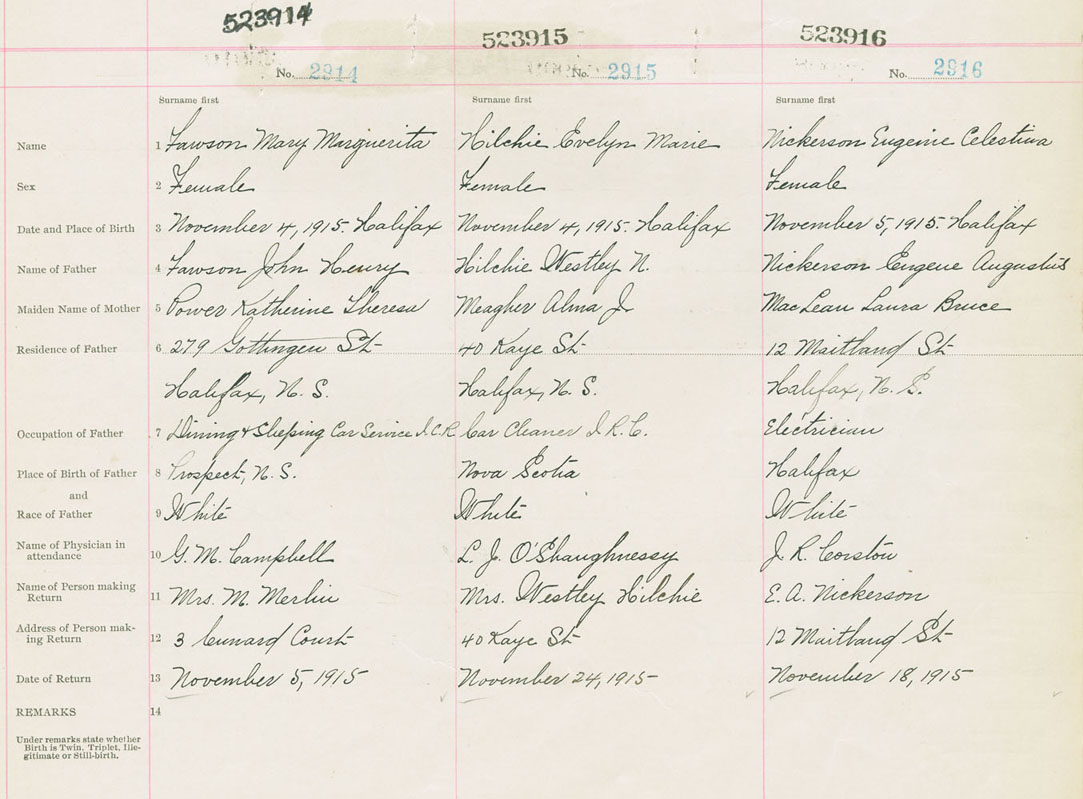 523914 523915 523916
No. 2914 No. 2915 No. 2916
Surname first Surname first Surname first
Name 1 Lawson Mary Marguerita Hilchie Evelyn Marie Nickerson Eugenie Celestina
Sex 2 Female Female Female
Date and Place of Birth 3 November 4, 1915. Halifax November 4, 1915. Halifax November 5, 1915. Halifax
Name of Father 4 Lawson John Henry Hilchie Westley N. Nickerson Eugene Augustus
Maiden Name of Mother 5 Power Katherine Theresa Meagher Alma J. MacLean Laura Bruce
Residence of Father 6 279 Gottingen St 40 Kaye St 12 Maitland St
Halifax, N. S. Halifax, N. S. Halifax, N. S.
Occupation of Father 7 Dining & Sleeping Car Service I.C.R. Car Cleaner I.R.C. Electrician
Place of Birth of Father 8 Prospect, N. S. Nova Scotia Halifax
and
Race of Father 9 White White White
Name of Physician in attendance 10 G. M. Campbell L. J. O'Shaughnessy J. R. Corston
Name of Person making Return 11 Mrs. M. Merlin Mrs. Westley Hilchie E. A. Nickerson
Address of Person mak-
ing Return 12 3 Cunard Court 40 Kaye St 12 Maitland St
Date of Return 13 November 5, 1915 November 24, 1915 November 18, 1915
REMARKS 14
Under remarks state whether
Birth is Twin, Triplet, Ille-
gitimate or Still-birth.